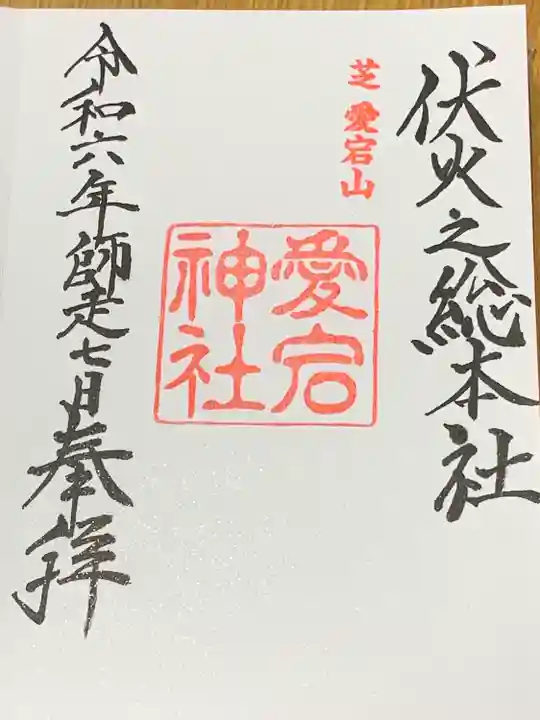 伏火之総本社
芝 愛宕山
愛宕
神社
令和六年師走七日奉拝